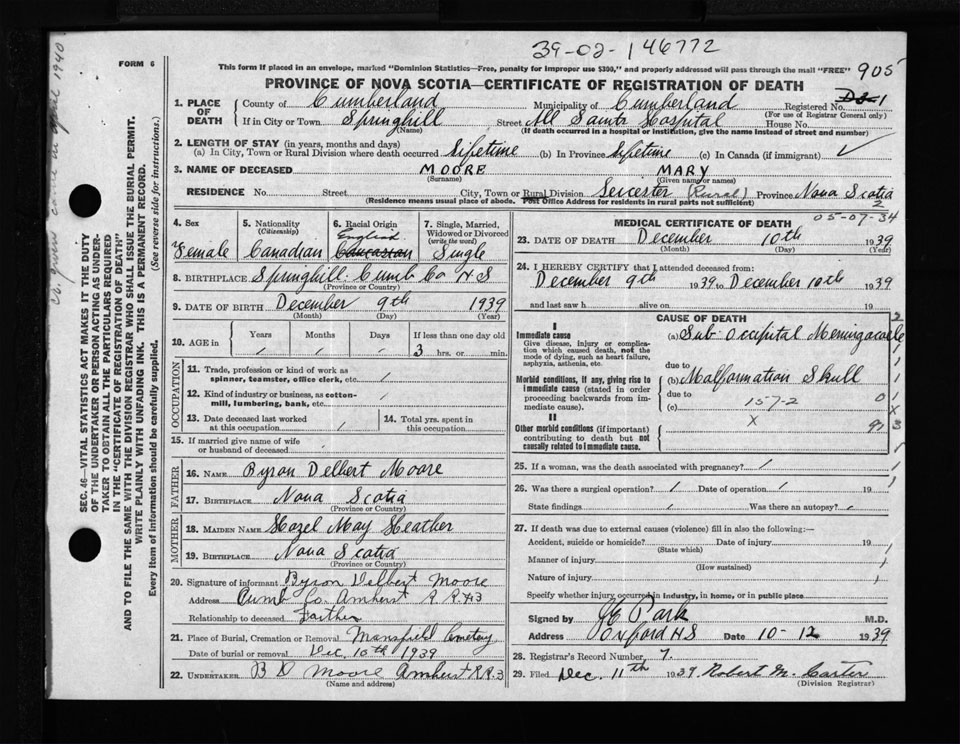 39-02-146772
FORM 6
This form if placed in an envelope, marked "Dominion Statistics—Free, penalty for improper use $300," and properly addressed will pass through the mail "FREE"
905
PROVINCE OF NOVA SCOTIA—CERTIFICATE OF REGISTRATION OF DEATH
1. PLACE OF DEATH
County of Cumberland Municipality of Cumberland Registered No. 1
(For use of Registrar General only)
If in City or Town Springhill Street All Saints Hospital House No.
(Name) (If death occurred in a hospital or institution, give the name instead of street and number)
2. LENGTH OF STAY (in years, months and days)
(a) In City, Town or Rural Division where death occurred Lifetime (b) In Province Lifetime (c) In Canada (if immigrant)
3. NAME OF DECEASED MOORE MARY
(Surname) (Given name or names)
RESIDENCE No. Street City, Town or Rural Division Leicester (Rural) Province Nova Scotia
(Residence means usual place of abode. Post Office Address for residents in rural parts not sufficient)
2
05-07-34
4. Sex 5. Nationality (Citizenship) 6. Racial Origin 7. Single, Married, Widowed or Divorced (write the word)
English
Female Canadian Caucasian Single
8. BIRTHPLACE Springhill. Cumb Co N S
(Province or Country)
9. DATE OF BIRTH December 9th 1939
(Month) (Day) (Year)
10. AGE in Years Months Days If less than one day old
/ / / 3 hrs. or min.
OCCUPATION
11. Trade, profession or kind of work as spinner, teamster, office clerk, etc. /
12. Kind of industry or business, as cotton-mill, lumbering, bank, etc. /
13. Date deceased last worked at this occupation /
14. Total yrs. spent in this occupation
15. If married give name of wife or husband of deceased
FATHER
16. NAME Byron Delbert Moore
17. BIRTHPLACE Nova Scotia
(Province or Country)
MOTHER
18. MAIDEN NAME Hazel May Heather
19. BIRTHPLACE Nova Scotia
(Province or Country)
20. Signature of informant Byron Delbert Moore
Address Cumb Co. Amherst R R #3
Relationship to deceased Farther
21. Place of Burial, Cremation or Removal Mansfield Cemetary
Date of burial or removal Dec. 10th 1939
22. UNDERTAKER B D Moore Amherst R.R. 3
(Name and address)
MEDICAL CERTIFICATE OF DEATH
23. DATE OF DEATH December 10th 1939
(Month) (Day)
24. I HEREBY CERTIFY that I attended deceased from:
December 9th 1939 to December 10th 1939
and last saw h alive on 19
CAUSE OF DEATH
I
Immediate cause
Give disease, injury or complication which caused death, not the mode of dying, such as heart failure, asphyxia, asthenia, etc.
(a) Sub-Occipital Meningocoele
due to
Morbid conditions, if any, giving rise to immediate cause (stated in order proceeding backwards from immediate cause).
(b) Malformation Skull
due to
(c) 157-2
II
Other morbid conditions (if important) contributing to death but not causally related to immediate cause.
X
25. If a woman, was the death associated with pregnancy? /
26. Was there a surgical operation? / Date of operation / 19
State findings / Was there an autopsy? /
27. If death was due to external causes (violence) fill in also the following:—
Accident, suicide or homicide? Date of injury 19
(State which)
Manner of injury
(How sustained)
Nature of injury
Specify whether injury occurred in industry, in home, or in public place
Signed by H E Park M.D.
Address Oxford N S Date 10-12 1939
28. Registrar's Record Number 7.
29. Filed Dec. 11th 1939 Robert M. Carter
(Division Registrar)
SEC. 46—VITAL STATISTICS ACT MAKES IT THE DUTY
OF THE UNDERTAKER OR PERSON ACTING AS UNDER-
TAKER TO OBTAIN ALL THE PARTICULARS REQUIRED
IN THE "CERTIFICATE OF REGISTRATION OF DEATH"
AND TO FILE THE SAME WITH THE DIVISION REGISTRAR WHO SHALL ISSUE THE BURIAL PERMIT.
WRITE PLAINLY WITH UNFADING INK. THIS IS A PERMANENT RECORD.
Every item of information should be carefully supplied. (See reverse side for instructions.)
April 1940